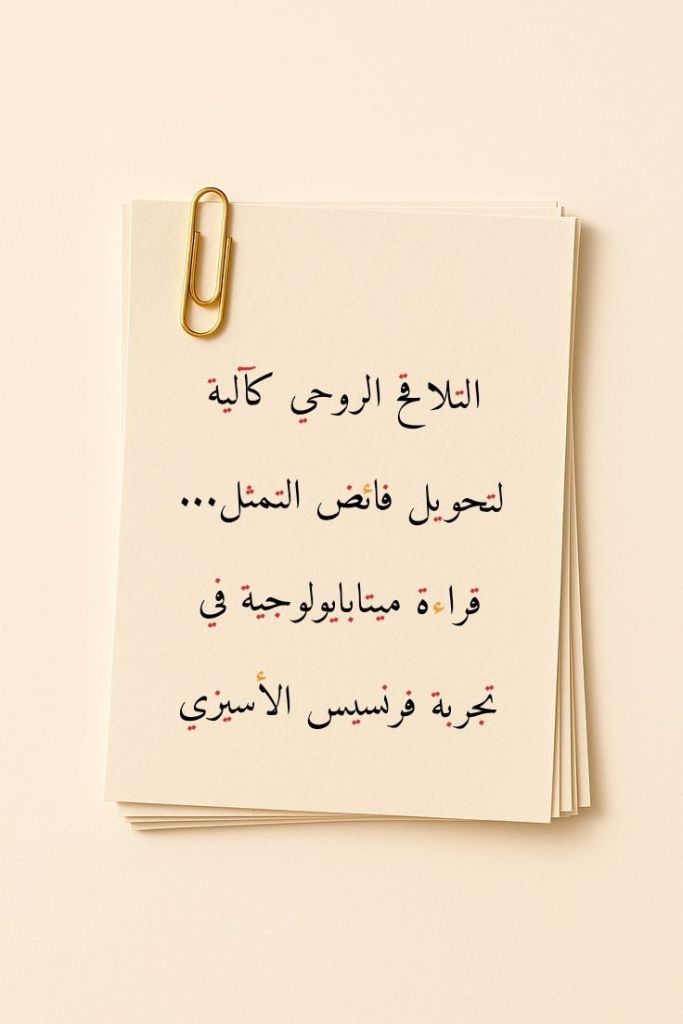 التلاقح الروحي كآلية
لتحويل فائض التمثل...
قراءة ميتابايولوجية في
تجربة فرنسيس الأسيزي